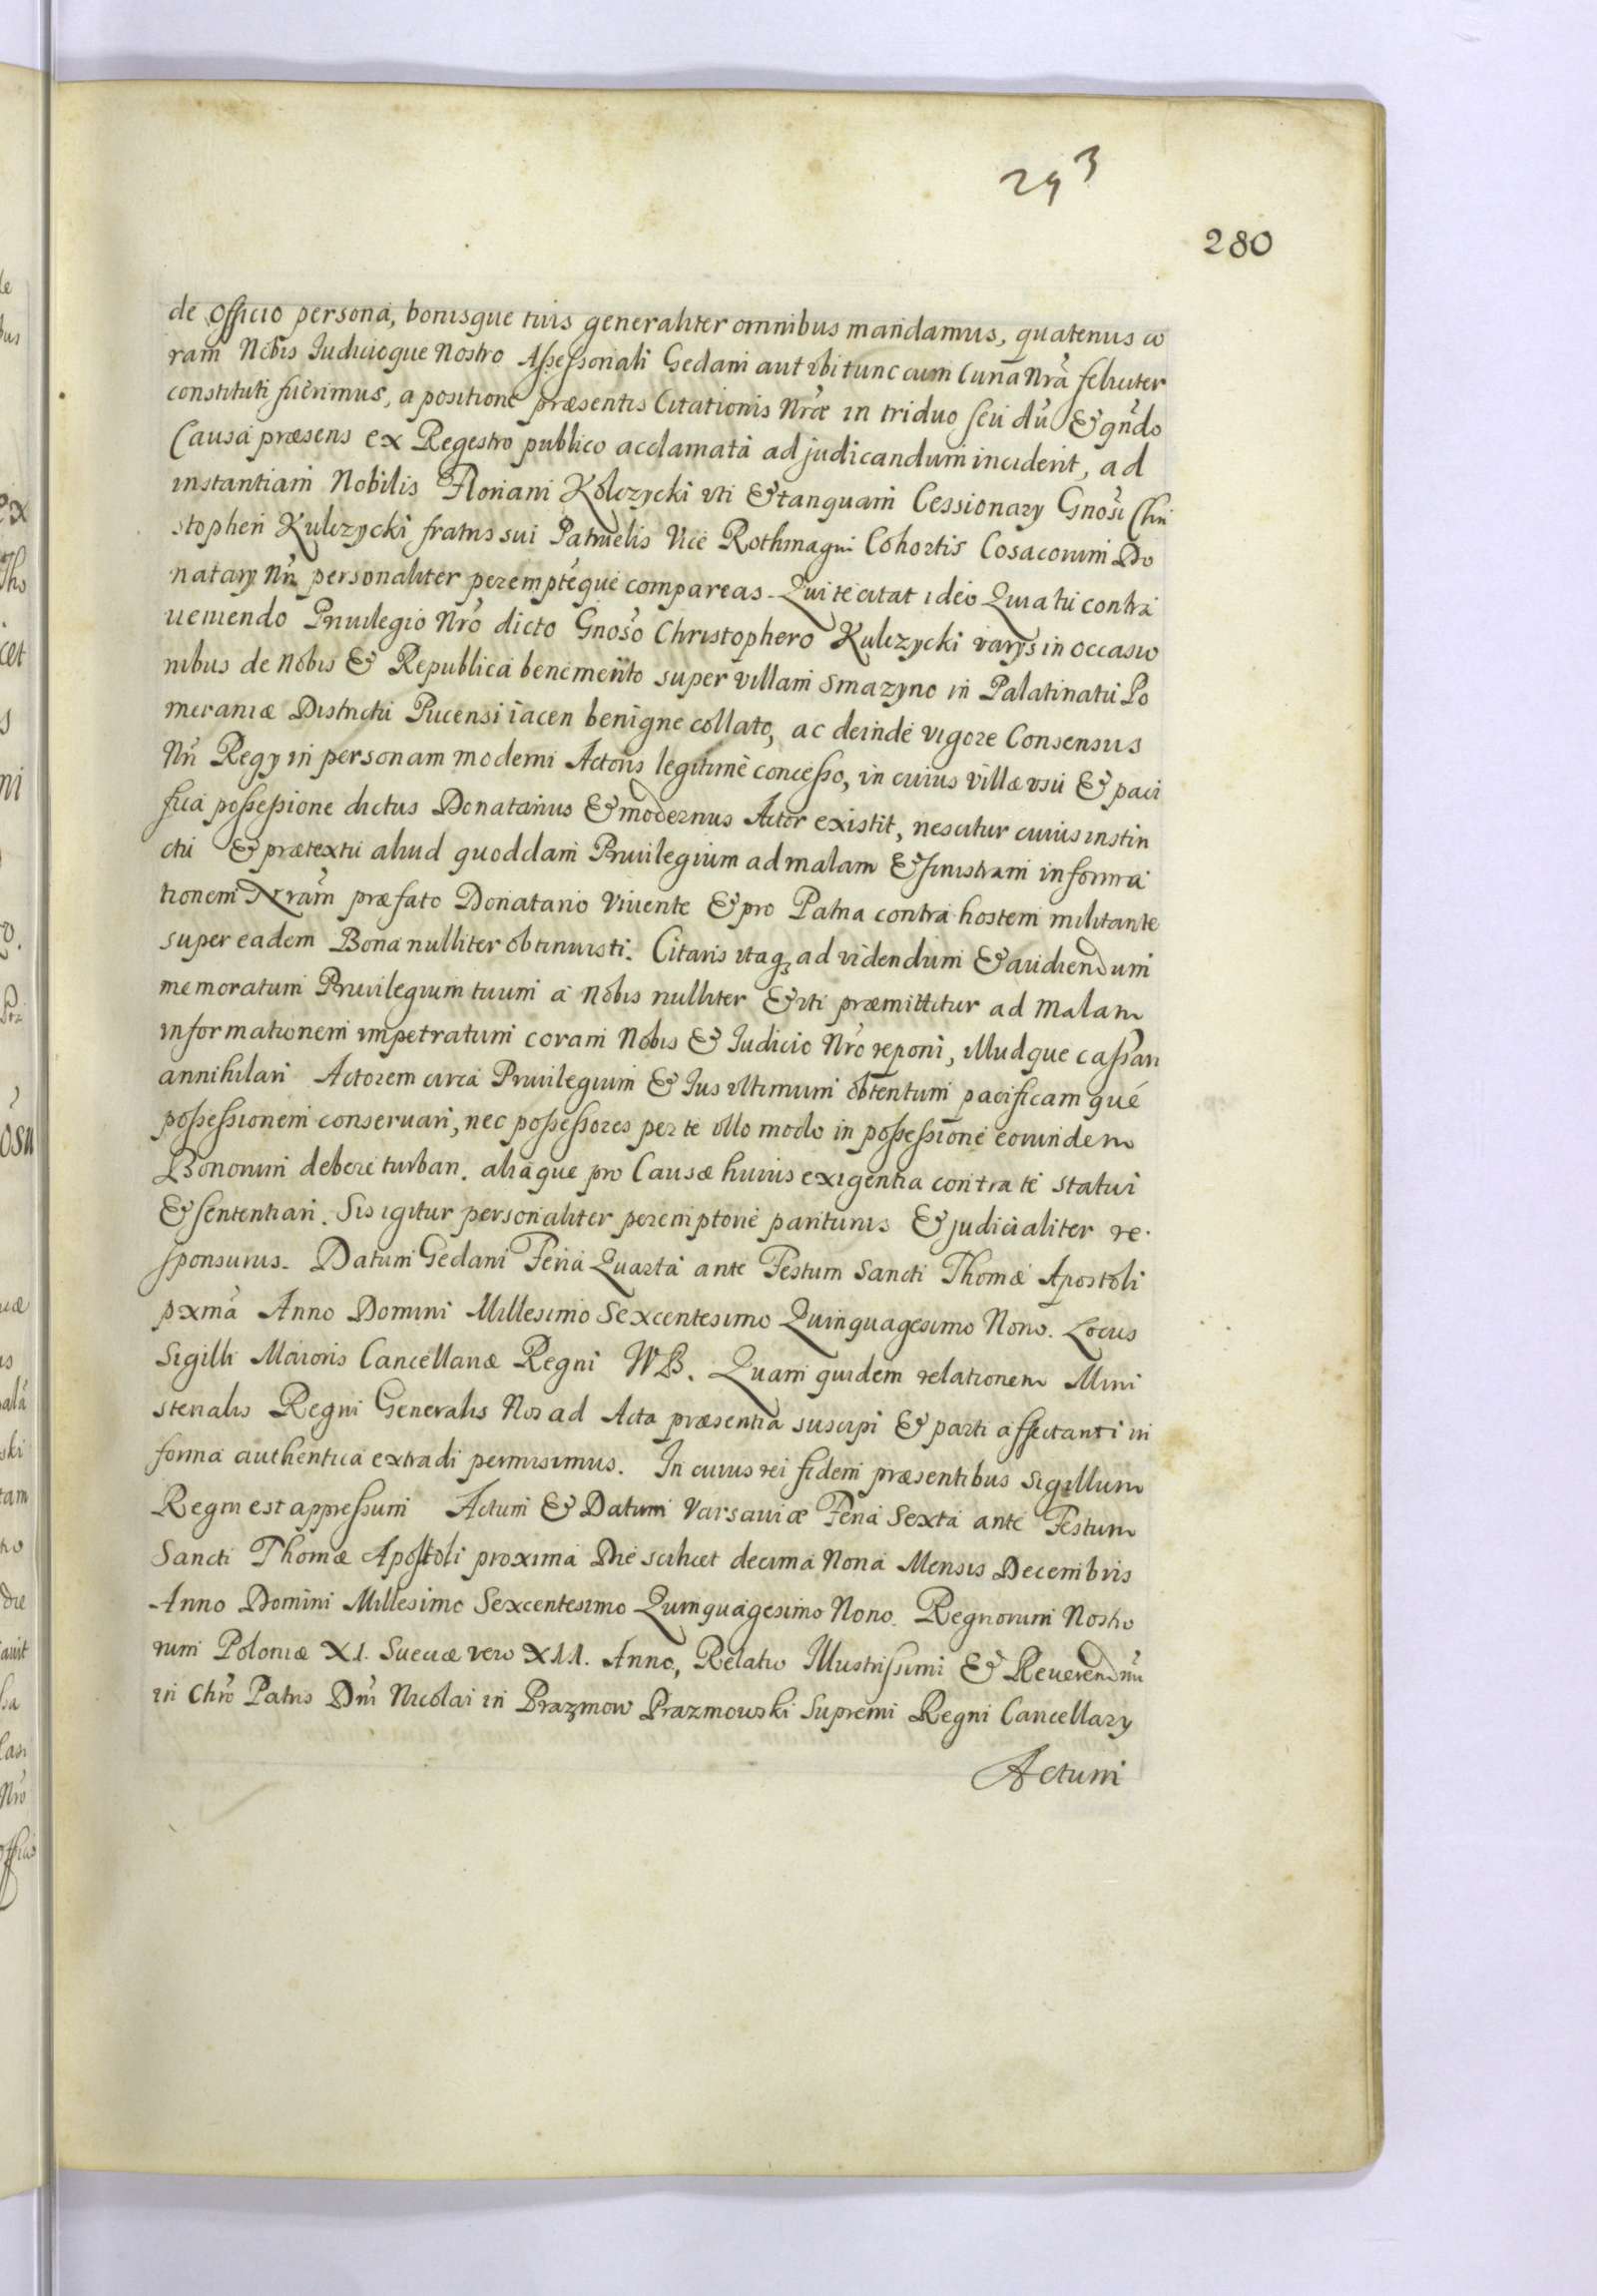 293
280
de Officio persona, bonisque tuis generaliter omnibus mandamus, quatenus co
ram Nobis Iudicioque Nostro Assessoriali Gedani aut ibi tunc cum Curia Nrâ feliciter
constituti fuerimus, a positione præsentis Citationis Nræ in triduo seu dũ & qn̄do
Causa præsens ex Regestro publico acclamata ad judicandum inciderit, ad
instantiam Nobilis Floriani Kólczycki uti & tanquam Cessionary Gnosi Chri
stopheri Kulczycki fratris sui Patruelis Vice Rothmagri Cohortis Cosacorum Do
natary Nri personaliter perempteque compareas. Qui te citat ideo Quia tu contra
ueniendo Priuilegio Nrõ dicto Gnoso Christophero Kulczycki varys in occasio
nibus de Nobis & Republica benemerito super villam Smazyno in Palatinatu Po
meraniæ Districtu Pucensi iacen benigne collato, ac deinde vigore Consensus
Nri Regy in personam moderni Actoris legitime concesso, in cuius villæ usu & paci
fica possessione dictus Donatarius & modernus Actor existit, nescitur cuius instin
ctu & prætextu aliud quoddam Priuilegium ad malam & sinistram informa
tionem Nram præfato Donatario Viuente & pro Patria contra hostem militante
super eadem Bona nulliter obtinuisti. Citaris itaq ad videndum & audiendum
memoratum Priuilegium tuum a Nobis nulliter & uti præmittitur ad malam
informationem impetratum coram Nobis & Iudicio Nrõ reponi, illudque cassari
annihilari Actorem circa Priuilegium & Ius ultimum obtentum pacificam qué
possessionem conseruari, nec possessores per te ullo modo in possessione eorundem
Bonorum debere turbari. aliaque pro Causæ huius exigentia contra te statui
& sententiari. Sis igitur personaliter peremptorie pariturus & judicialiter re.
sponsurus. Datum Gedani Feria Quarta ante Festum Sancti Thomæ Apostoli
pxma Anno Domini Millesimo Sexcentesimo Quinquagesimo Nono. Locus
Sigilli Maioris Cancellariæ Regni WB. Quam quidem relationem Mini
sterialis Regni Generalis Nos ad Acta præsentia suscipi & parti affectanti in
forma authentica extradi permisimus. In cuius rei fidem præsentibus Sigillum
Regni est appressum Actum & Datum Varsauiæ Feria Sexta ante Festum
Sancti Thomæ Apostoli proxima Die scilicet decima Nona Mensis Decembris
Anno Domini Millesimo Sexcentesimo Quinquagesimo Nono. Regnorum Nostro
rum Poloniæ XI. Sueciæ vero XII. Anno, Relatio Illustrissimi & Reuerendmi
in Chro Patris Dni Nicolai in Prazmow Prazmowski Supremi Regni Cancellary
Actum